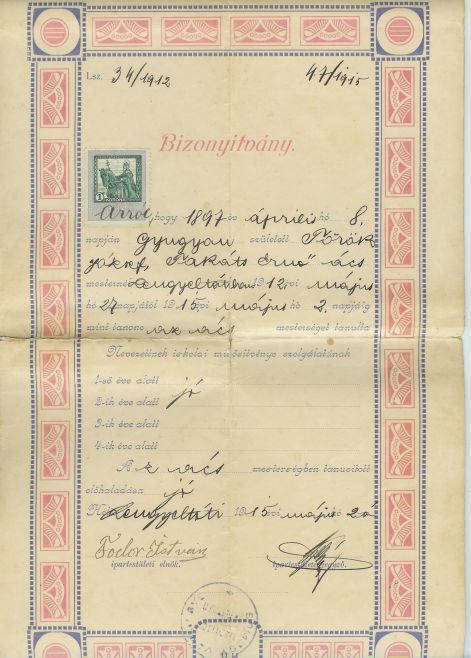 Lsz. 34/1912 47/1915
Bizonyitvány.
1 KORONA
Arról, hogy 1897 év április hó 8.
napján Gyugyan született Török
József, Takáts Ernő ács
mesternél 1912 évi május
hó 24 napjától 1915 évi május hó 2. napjáig
mint tanonc az ács mesterséget tanulta
Nevezettnek iskolai minősítvénye szolgálatának
1-ső éve alatt
2-ik éve alatt jó
3-ik éve alatt
4-ik éve alatt
Az ács mesterségben tanusitott
előhaladása jó
1915 évi május hó 2án
Fodor István
ipartestületi elnök. ipartestületi jegyző.